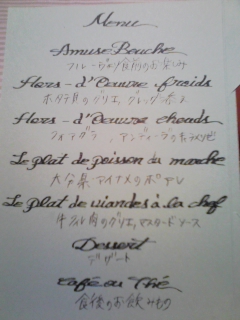 Menu
Amuse Bouche
フルーツと食前のお楽しみ
Hors-d'Oeuvre froids
ホタテ貝のグリエ、
Hors-d'Oeuvre chauds
フォアグラ アンディーブのキャラメリゼ
Le plat de poisson du marche
大分県・アイナメのポワレ
Le plat de viandes à la chef
牛フィレ肉のグリエ、マスタードソース
Dessert
デザート
café ou Thé
食後のお飲みもの